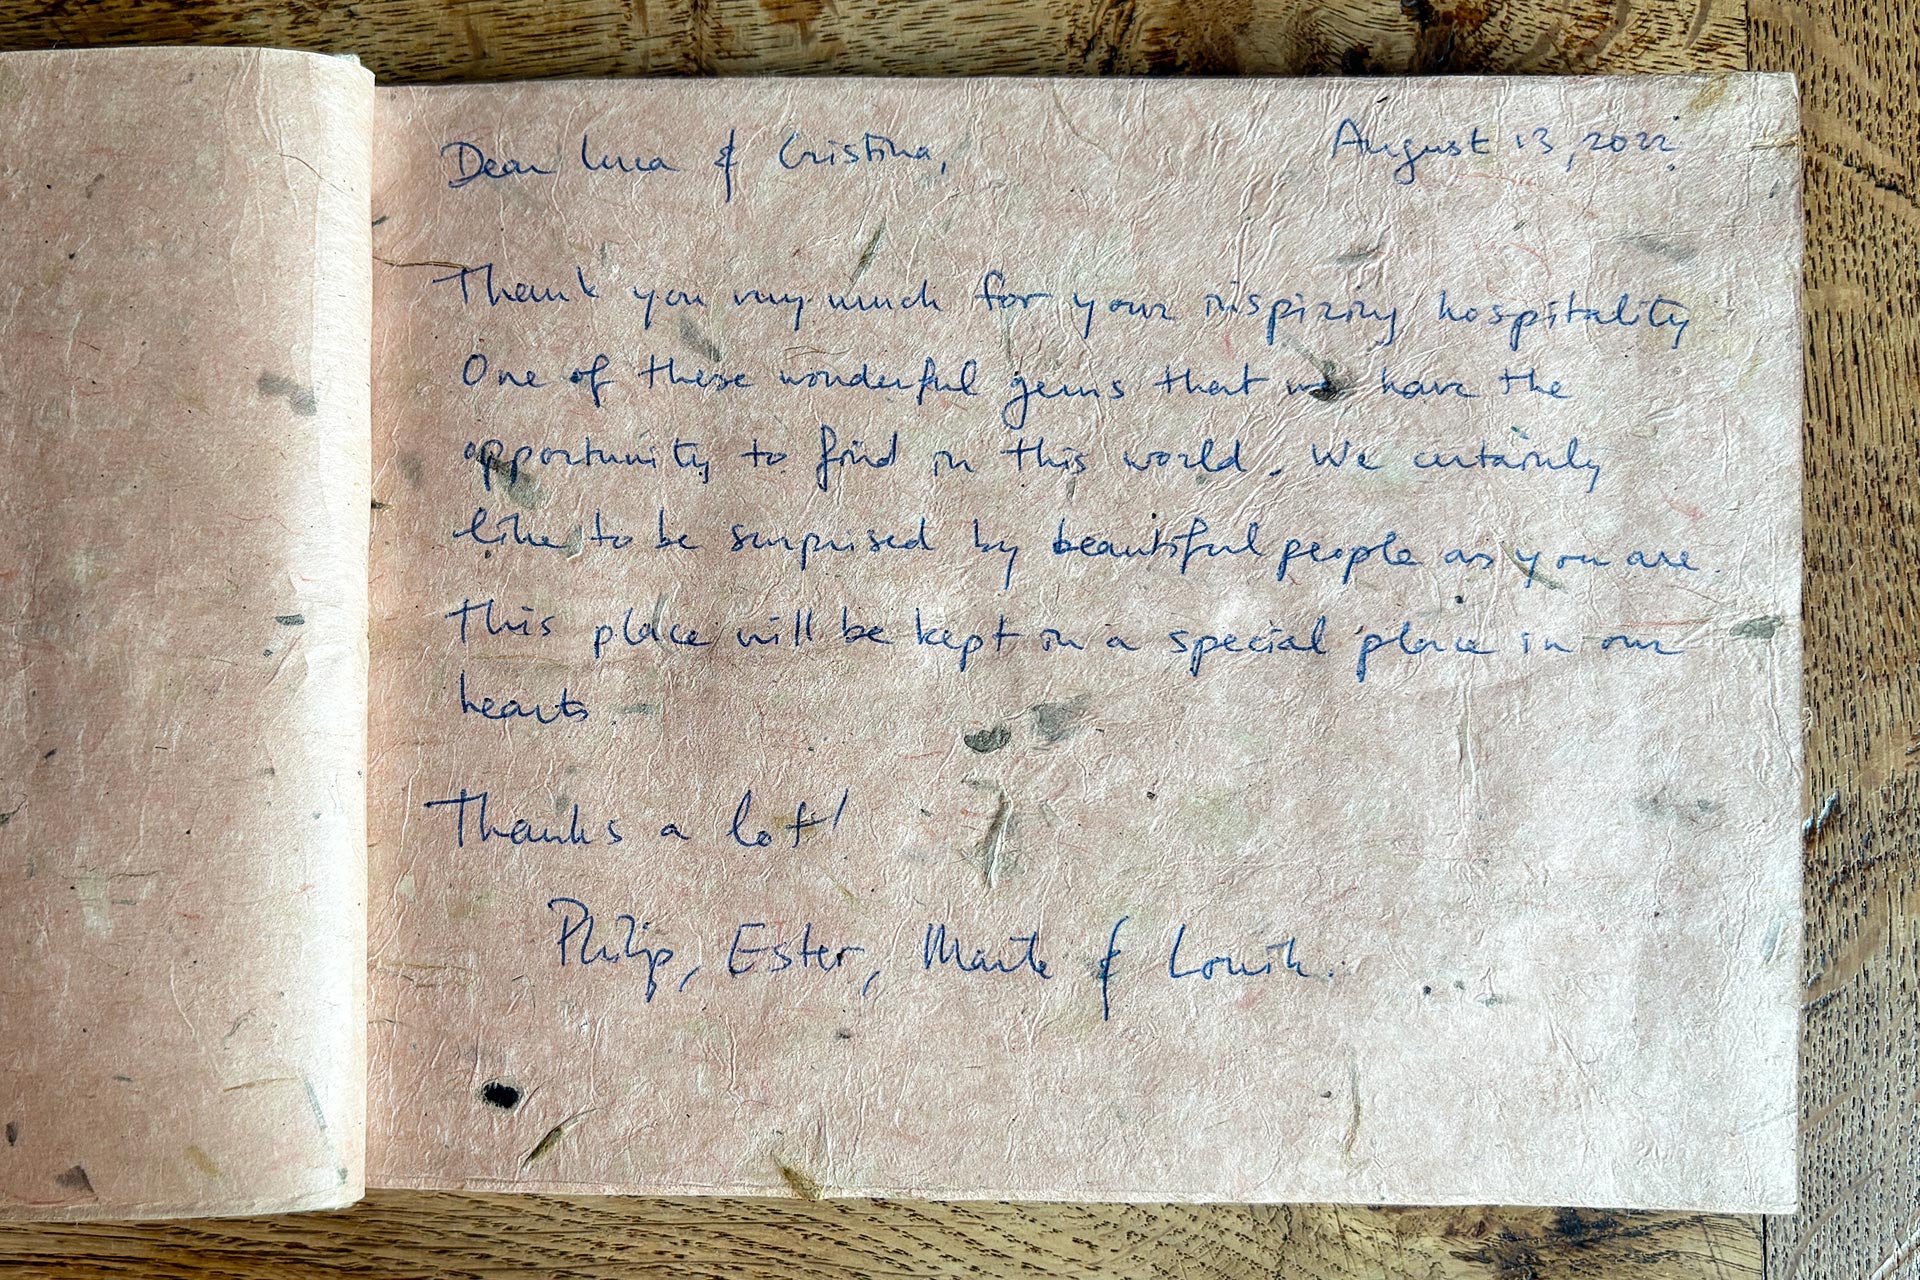 Dear Luca & Cristina,
August 13, 2022
Thank you very much for your inspiring hospitality
One of these wonderful gems that we have the
opportunity to find in this world. We certainly
like to be surprised by beautiful people as you are.
This place will be kept in a special place in our
hearts.
Thanks a lot!
Philip, Ester, &